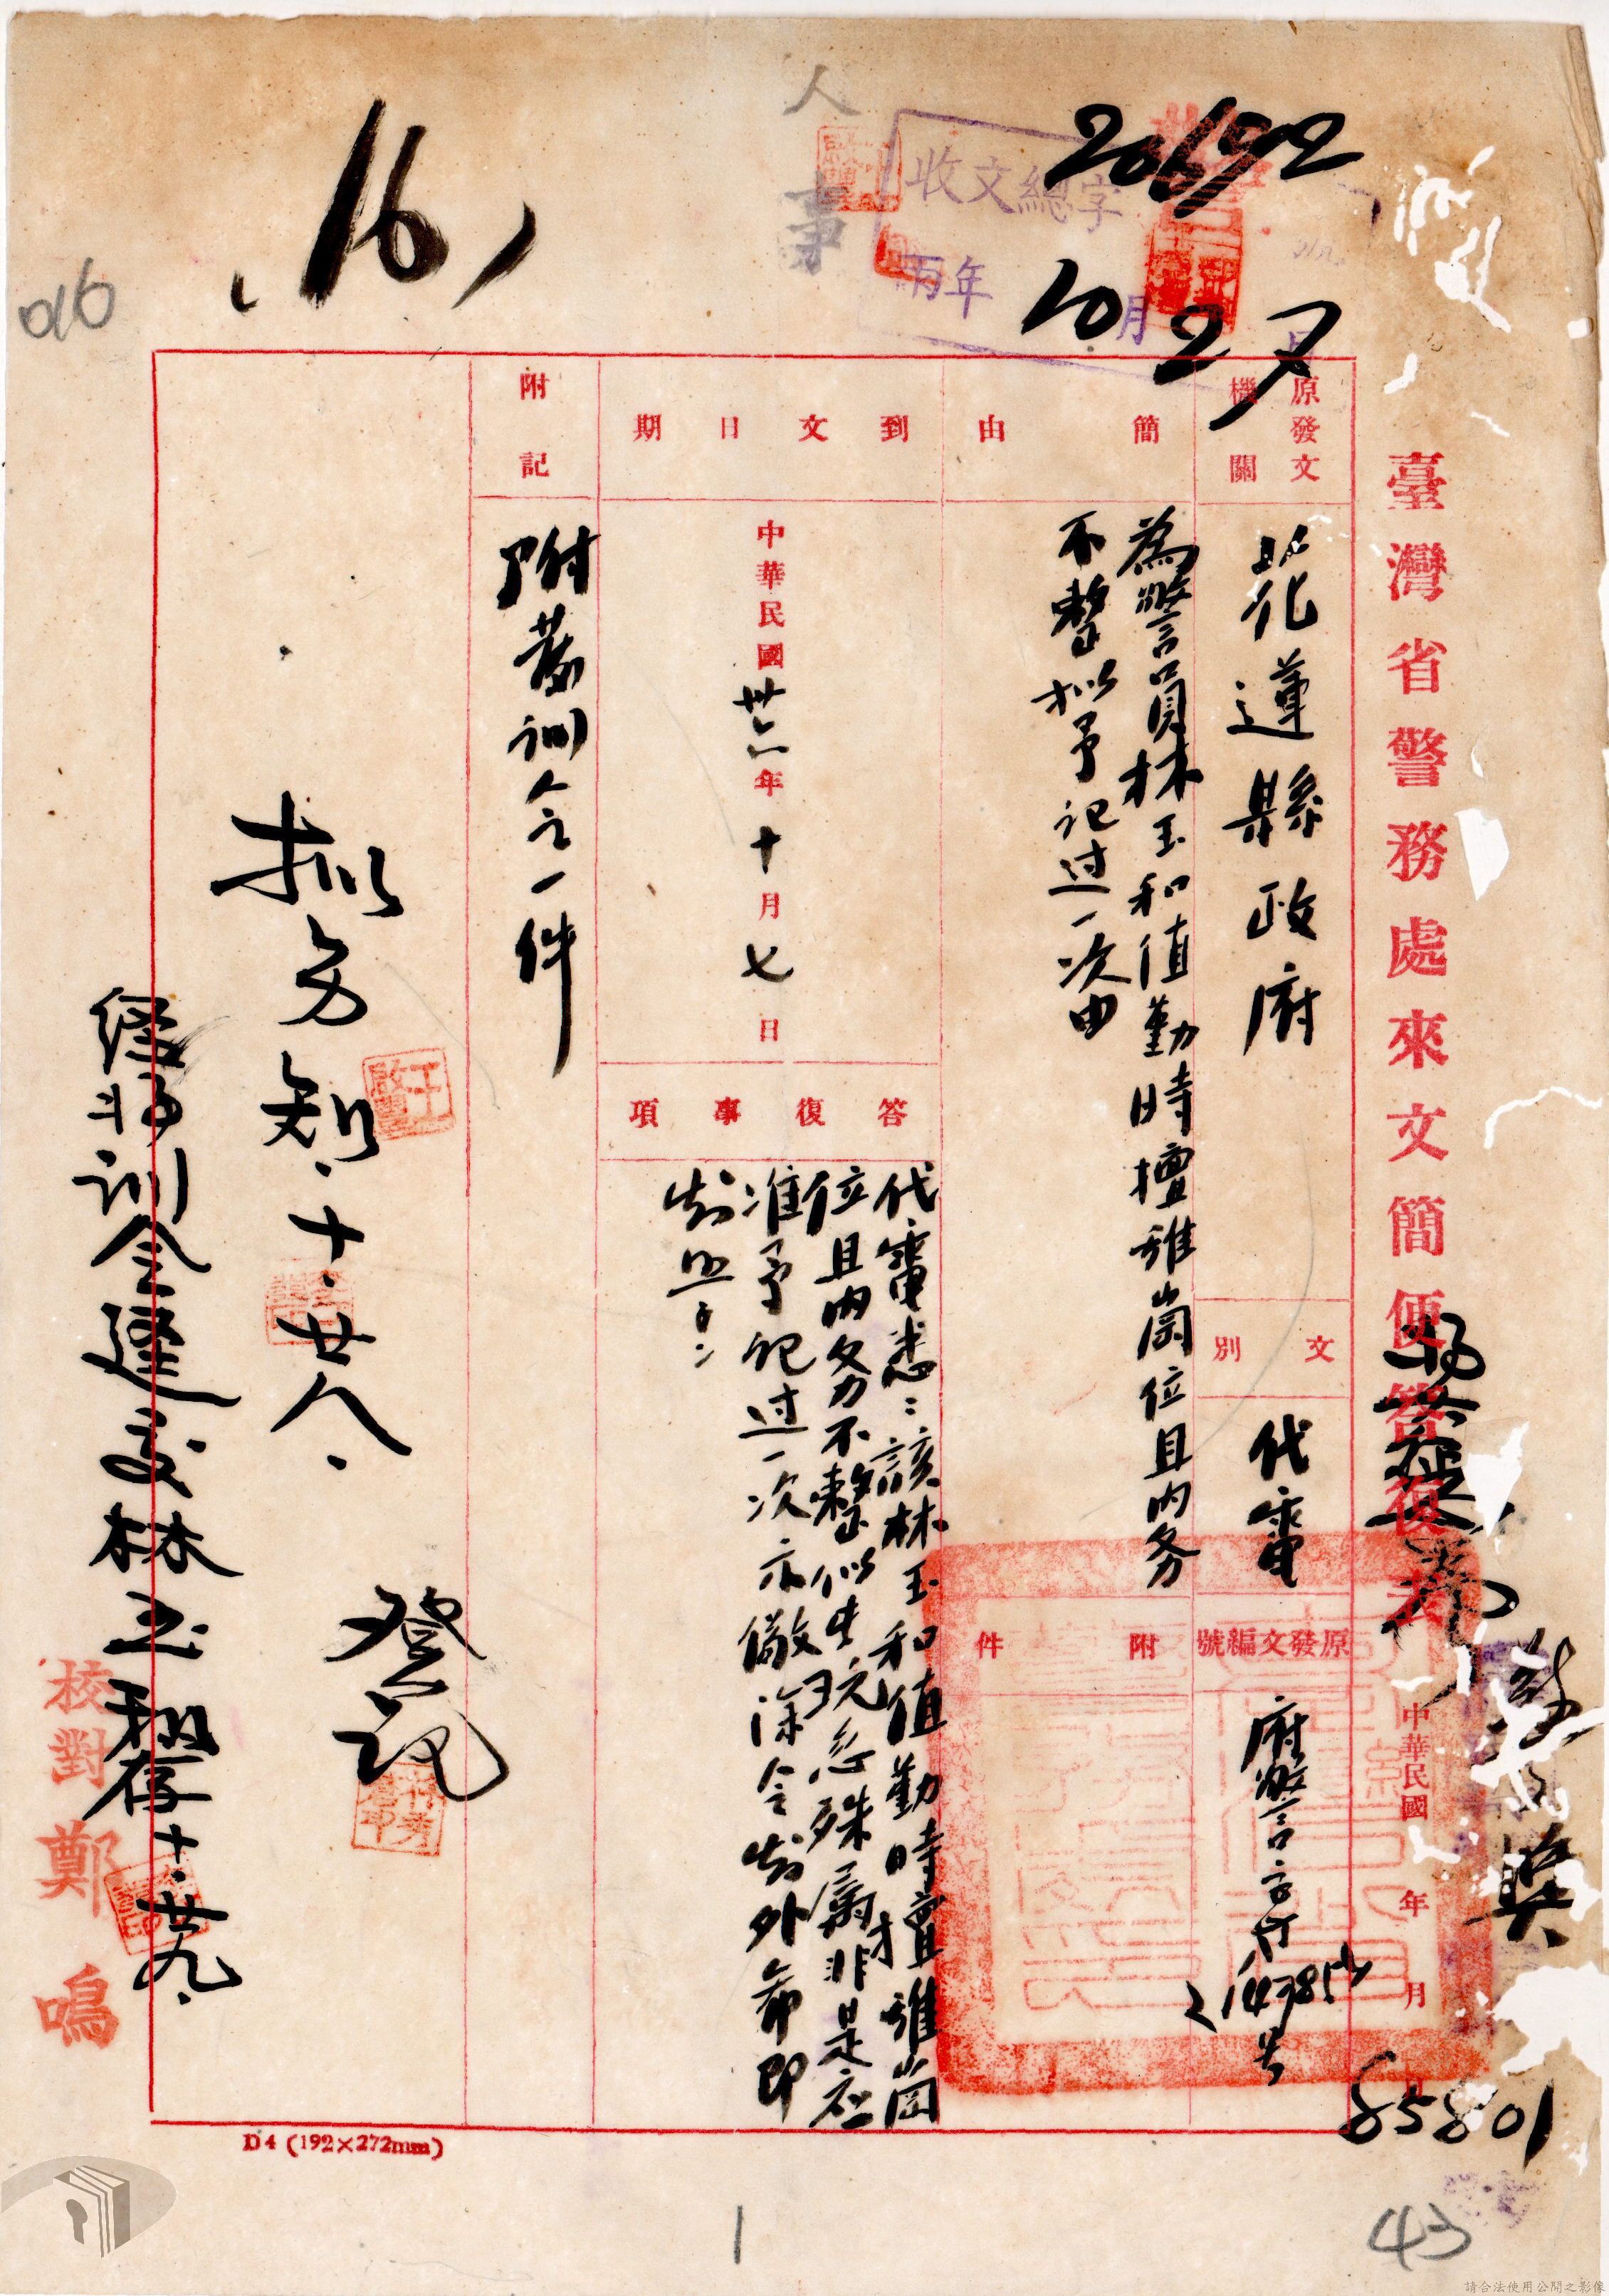 人事
收文總字
20692
年10月27日
(16)
016
臺灣省警務處來文簡便答復表
中華民國 年 月 日
85801
原發文機關
花蓮縣政府
文別
代電
原發文編號
簡由
為警員林玉和值勤時擅離崗位且內务
不整拟予记过一次由
附件
到文日期
中華民國卅六年十月七日
答復事項
代電悉:該林玉和值勤時擅離崗
位且內务不整似此玩忽殊屬非是应
准予记过一次示儆除令知外希即
知照
附記
附發訓令一件
登記
拟分知.十.廿八.
经將訓令逕交林玉和存十.廿九.
校對鄭鳴
D4 (192×272mm)
1
43
請合法使用公開之影像